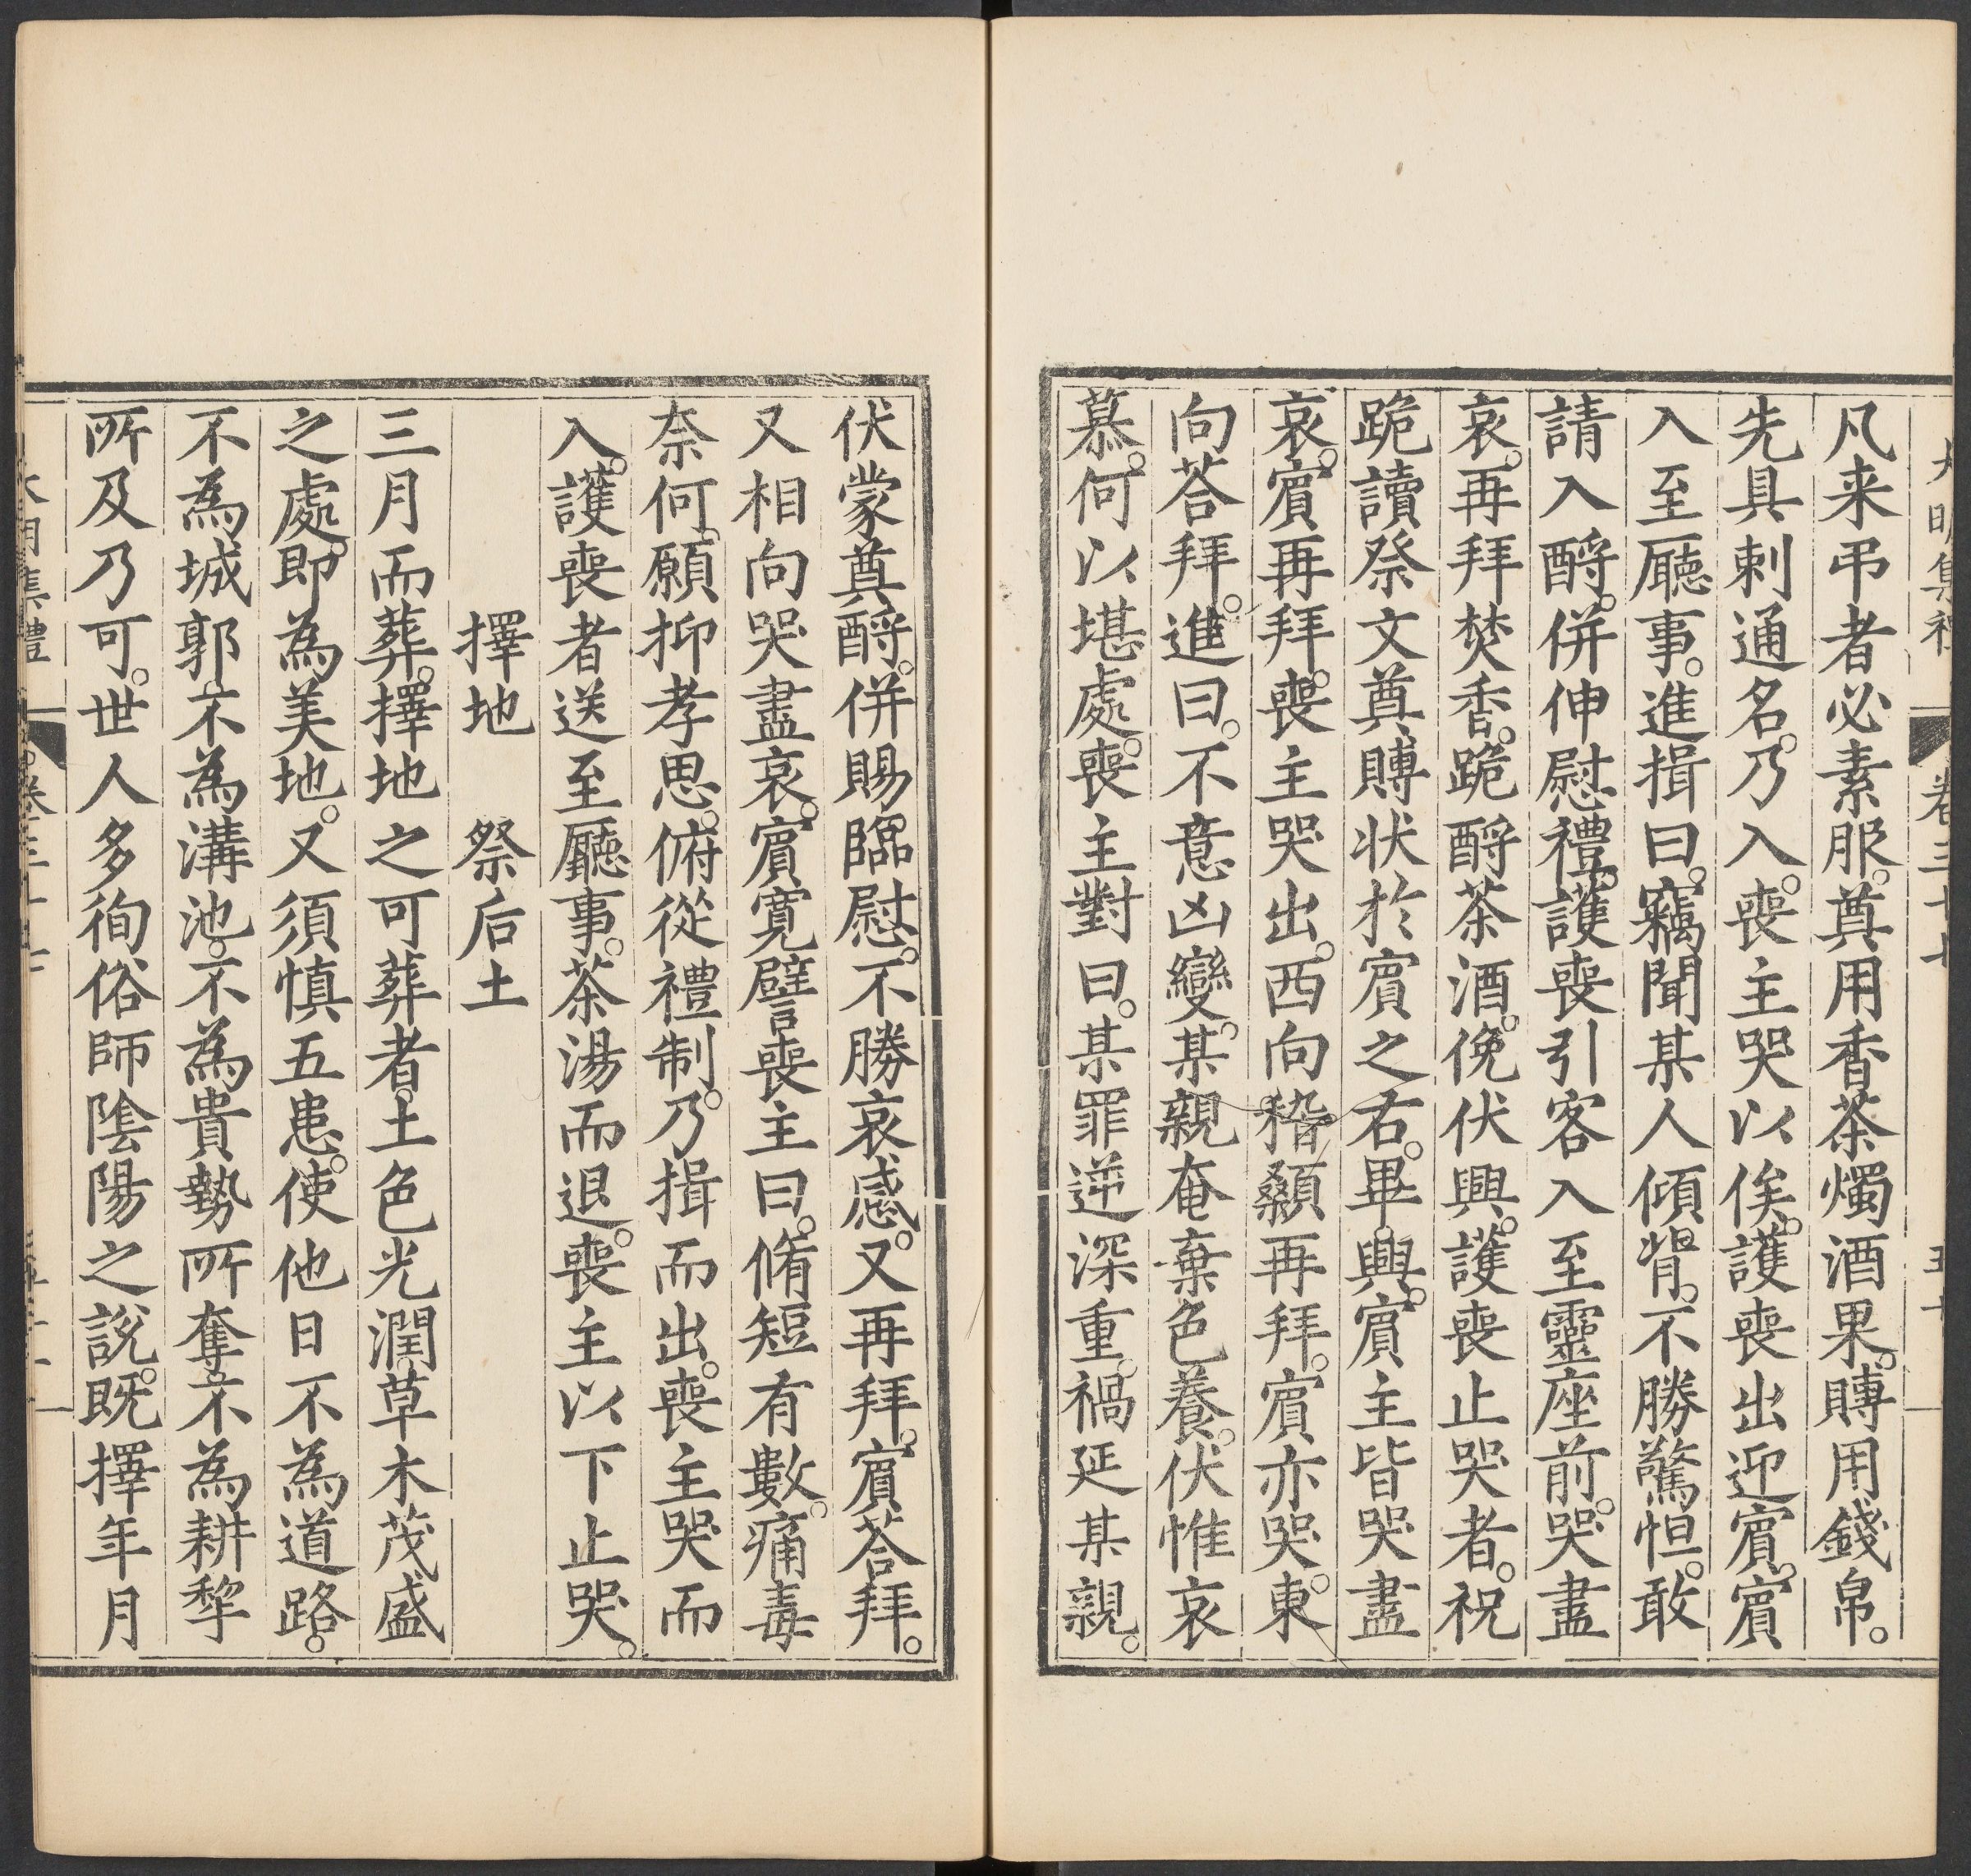 凡来弔者必素服。奠用香茶燭酒果。賻用錢帛。
先具刺通名。乃入。喪主哭以俟。護喪出迎賔。賔
入至廳事。進揖曰。竊聞某人傾背。不勝驚怛。敢
請入酹。併伸慰禮。護喪引客入至靈座前。哭盡
哀。再拜焚香。跪酹茶酒。俛伏興。護喪止哭者。祝
跪讀祭文奠賻状於賔之右。畢。興。賔主皆哭盡
哀。賔再拜。喪主哭出。西向稽顙再拜。賔亦哭。東
向荅拜。進曰。不意凶變。某親奄棄色養。伏惟哀
慕。何以堪處。喪主對曰。某罪逆深重。禍延某親。
伏蒙奠酹。併賜臨慰。不勝哀感。又再拜。賔荅拜。
又相向哭盡哀。賔寛譬喪主曰。脩短有數。痛毒
奈何。願抑孝思。俯從禮制。乃揖而出。喪主哭而
入。護喪者送至廳事。茶湯而退。喪主以下止哭。
擇地　祭后土
三月而葬。擇地之可葬者。土色光潤。草木茂盛
之處。即為美地。又須慎五患。使他日不為道路。
不為城郭。不為溝池。不為貴勢所奪。不為耕犂
所及乃可。世人多徇俗師陰陽之説。既擇年月
大明集禮　卷三十七